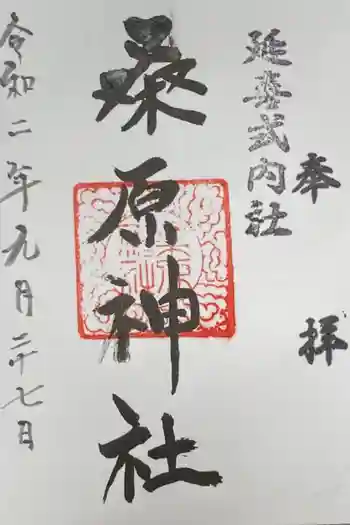 奉拝
延喜式内社
桑原神社
令和二年九月二十七日